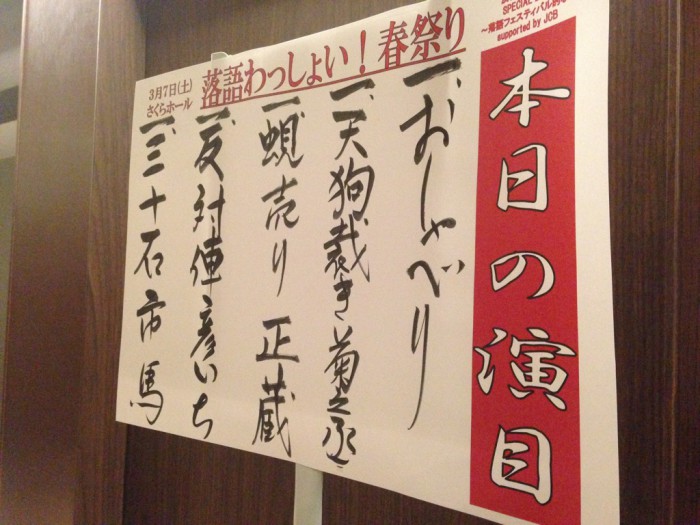 SPECIAL
～落語フェスティバル的な
supported by JCB
本日の演目
落語わっしょい！春祭り
3月7日(土)
さくらホール
一、おしゃべり
一、天狗裁き 菊之丞
一、蜆売り 正蔵
一、反対俥 彦いち
一、三十石 市馬